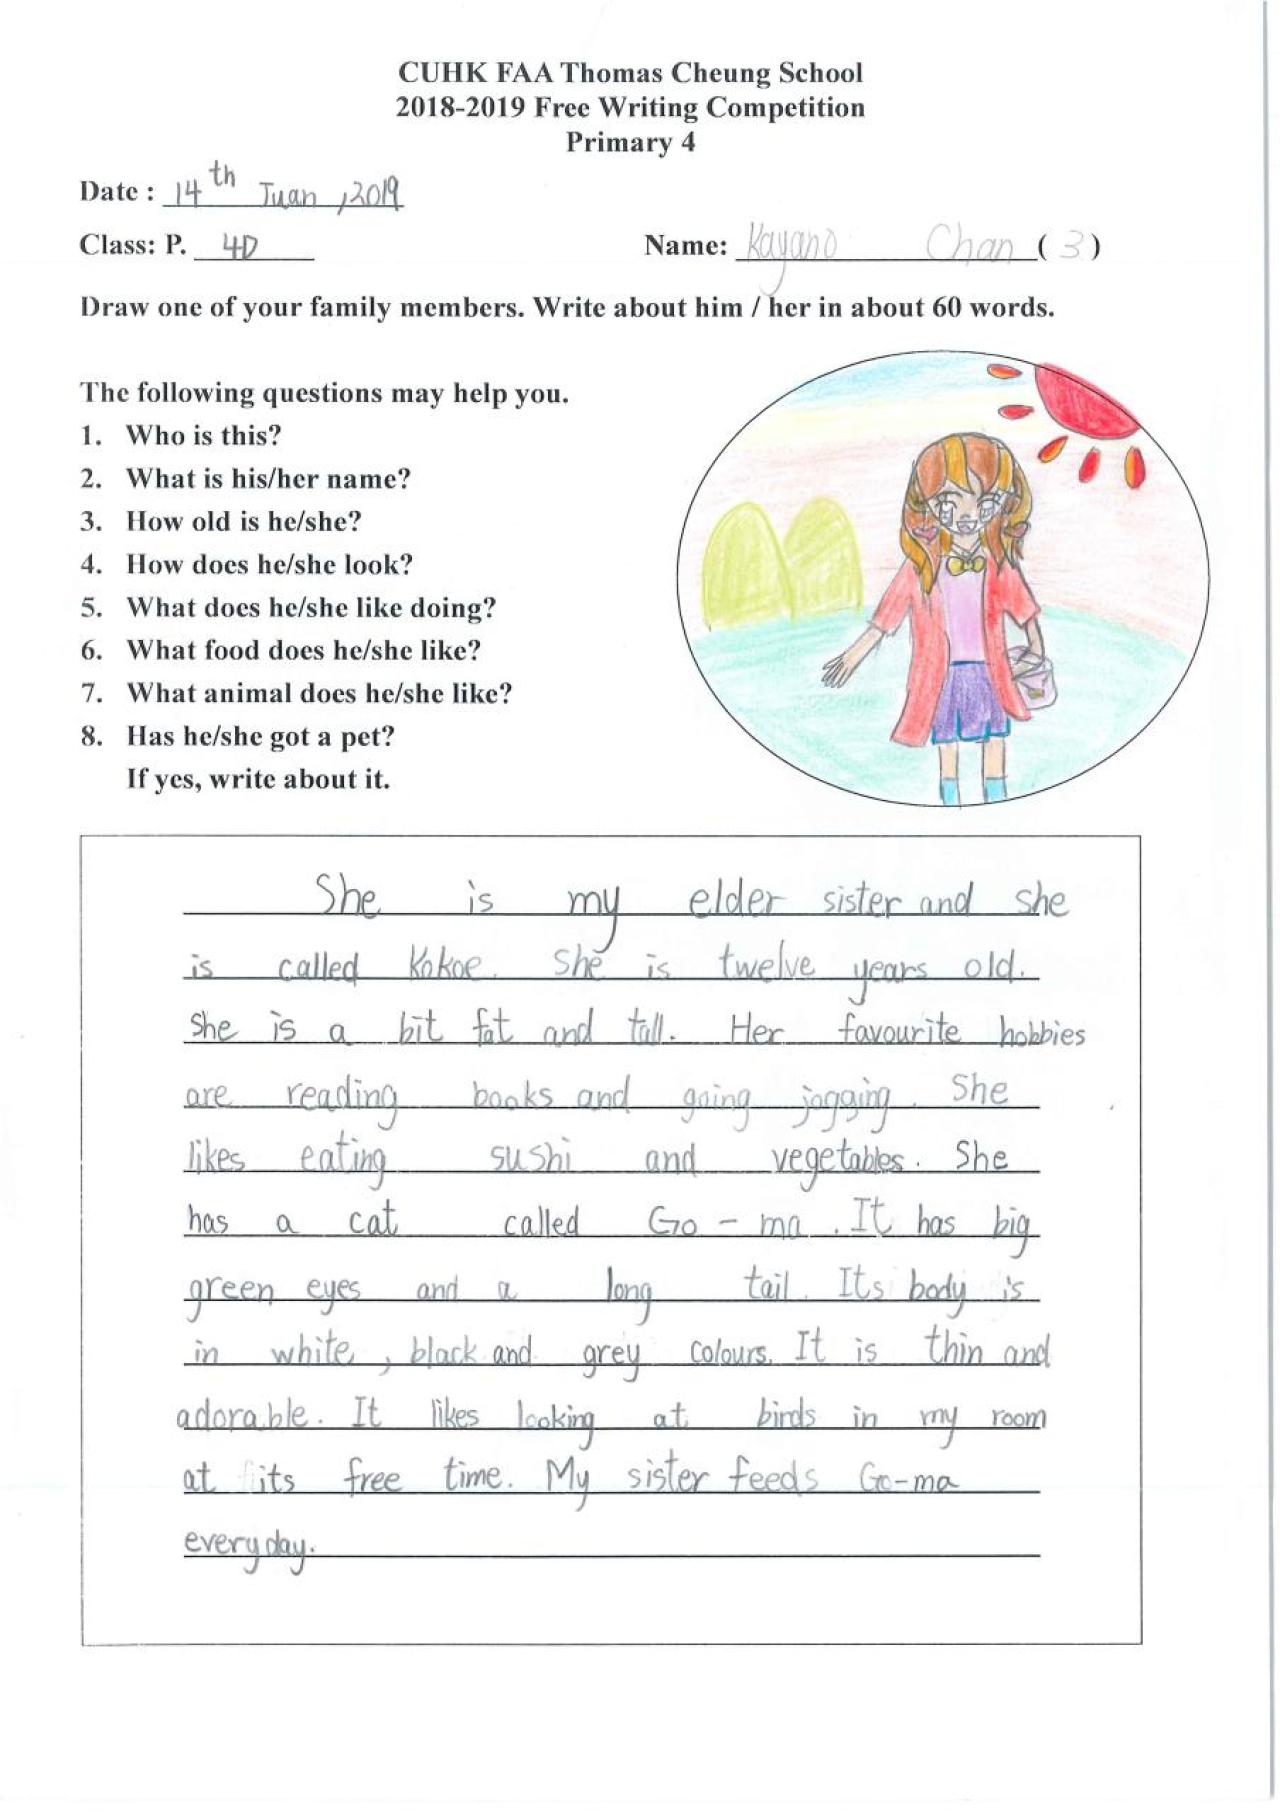 CUHK FAA Thomas Cheung School
2018-2019 Free Writing Competition
Primary 4
Date : 14th Juan ,2019
Class: P. 4D Name: Kayano Chan ( 3 )
Draw one of your family members. Write about him / her in about 60 words.
The following questions may help you.
1. Who is this?
2. What is his/her name?
3. How old is he/she?
4. How does he/she look?
5. What does he/she like doing?
6. What food does he/she like?
7. What animal does he/she like?
8. Has he/she got a pet?
If yes, write about it.
She is my elder sister and she
is called Kokoe. She is twelve years old.
She is a bit fat and tall. Her favourite hobbies
are reading books and going jogging. She
likes eating sushi and vegetables. She
has a cat called Go-ma. It has big
green eyes and a long tail. Its body is
in white, black and grey colours. It is thin and
adorable. It likes looking at birds in my room
at its free time. My sister feeds Go-ma
everyday.